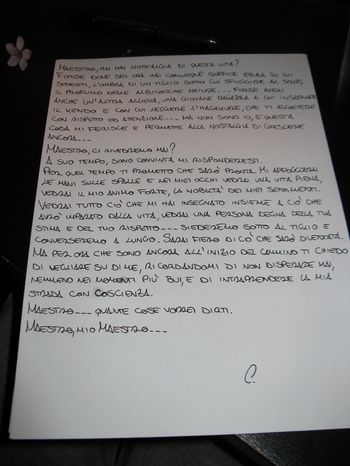 MAESTRO, HAI MAI NOSTALGIA DI QUESTA VITA?
FORSE DOVE SEI ORA HAI COMUNQUE SOFFICE ERBA SU CUI
SEDERTI, L'OMBRA DI UN TIGLIO SOTTO CUI SFUGGIRE AL SOLE,
IL PROFUMO DELLE ALBICOCCHE MATURE--- FORSE AVRAI
ANCHE UN'ALTRA ALLIEVA, UNA GIOVANE RAGAZZA A CUI INSEGNARE
IL KENDO E CON CUI LEGGERE L'HAGAKURE, CHE TI ASCOLTERÀ
CON RISPETTO ED ATTENZIONE--- MA NON SONO IO, E QUESTA
COSA MI FERISCE E PERMETTE ALLA NOSTALGIA DI CRESCERE
ANCORA---
MAESTRO, CI RIVEDREMO MAI?
A SUO TEMPO, SONO CONVINTA MI RISPONDERESTI.
PER QUEL TEMPO TI PROMETTO CHE SARÒ PRONTA. MI APPOGGERAI
LE MANI SULLE SPALLE E NEI MIEI OCCHI VEDRAI UNA VITA PIENA,
VEDRAI IL MIO ANIMO FORTE, LA NOBILTÀ DEI MIEI SENTIMENTI.
VEDRAI TUTTO CIÒ CHE MI HAI INSEGNATO INSIEME A CIÒ CHE
AVRÒ IMPARATO DALLA VITA, VEDRAI UNA PERSONA DEGNA DELLA TUA
STIMA E DEL TUO RISPETTO--- SIEDEREMO SOTTO AL TIGLIO E
CONVERSEREMO A LUNGO. SARAI FIERO DI CIÒ CHE SARÒ DIVENTATA.
MA PER ORA CHE SONO ANCORA ALL'INIZIO DEL CAMMINO TI CHIEDO
DI VEGLIARE SU DI ME, RICORDANDOMI DI NON DISPERARE MAI,
NEMMENO NEI MOMENTI PIÙ BUI, E DI INTRAPRENDERE LA MIA
STRADA CON COSCIENZA.
MAESTRO--- QUANTE COSE VORREI DIRTI.
MAESTRO, MIO MAESTRO---
C.